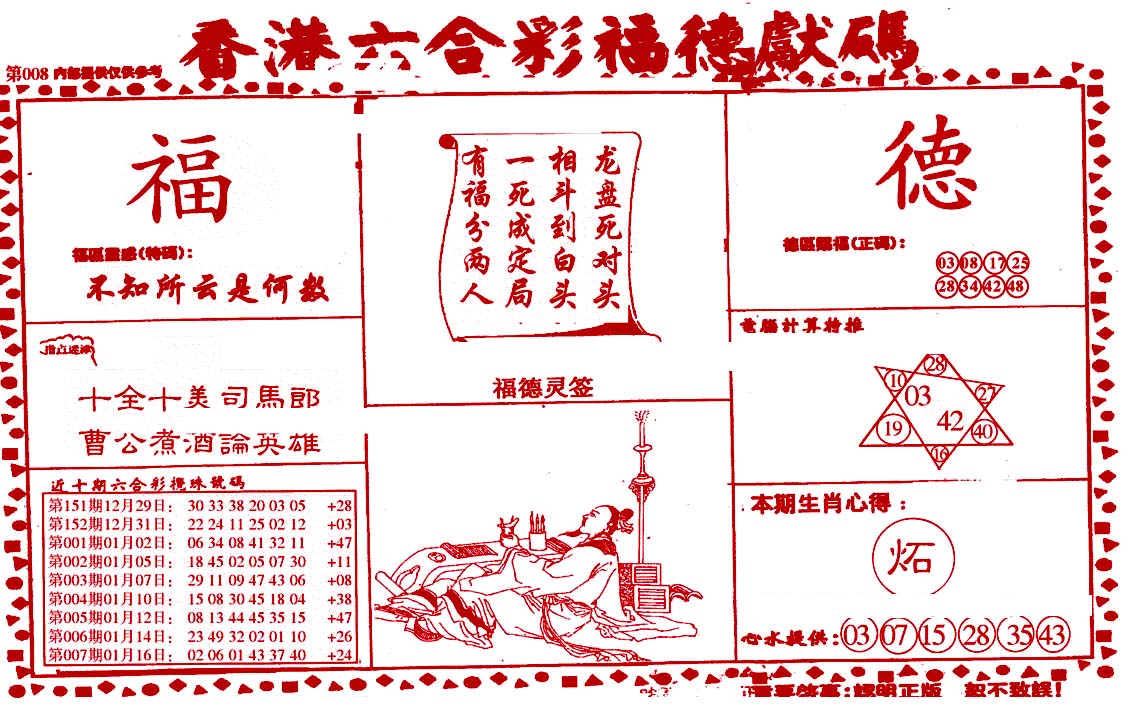 香港六合彩福德獻碼
第008 內部提供仅供參考
福
福區靈感(特碼):
不知所云是何數
龙盘死对头
相斗到白头
一死成定局
有福分两人
福德灵签
德
德區賜福(正碼):
03 08 17 25
28 34 42 48
指点迷津
十全十美司馬郎
曹公煮酒論英雄
電腦計算特推
28
10
03
27
42
19
40
16
近十期六合彩攪珠號碼
第151期12月29日: 30 33 38 20 03 05 +28
第152期12月31日: 22 24 11 25 02 12 +03
第001期01月02日: 06 34 08 41 32 11 +47
第002期01月05日: 18 45 02 05 07 30 +11
第003期01月07日: 29 11 09 47 43 06 +08
第004期01月10日: 15 08 30 45 18 04 +38
第005期01月12日: 08 13 44 45 35 15 +47
第006期01月14日: 23 49 32 02 01 10 +26
第007期01月16日: 02 06 01 43 37 40 +24
本期生肖心得:
炻
心水提供: 03 07 15 28 35 43
認明正版 以不致誤!